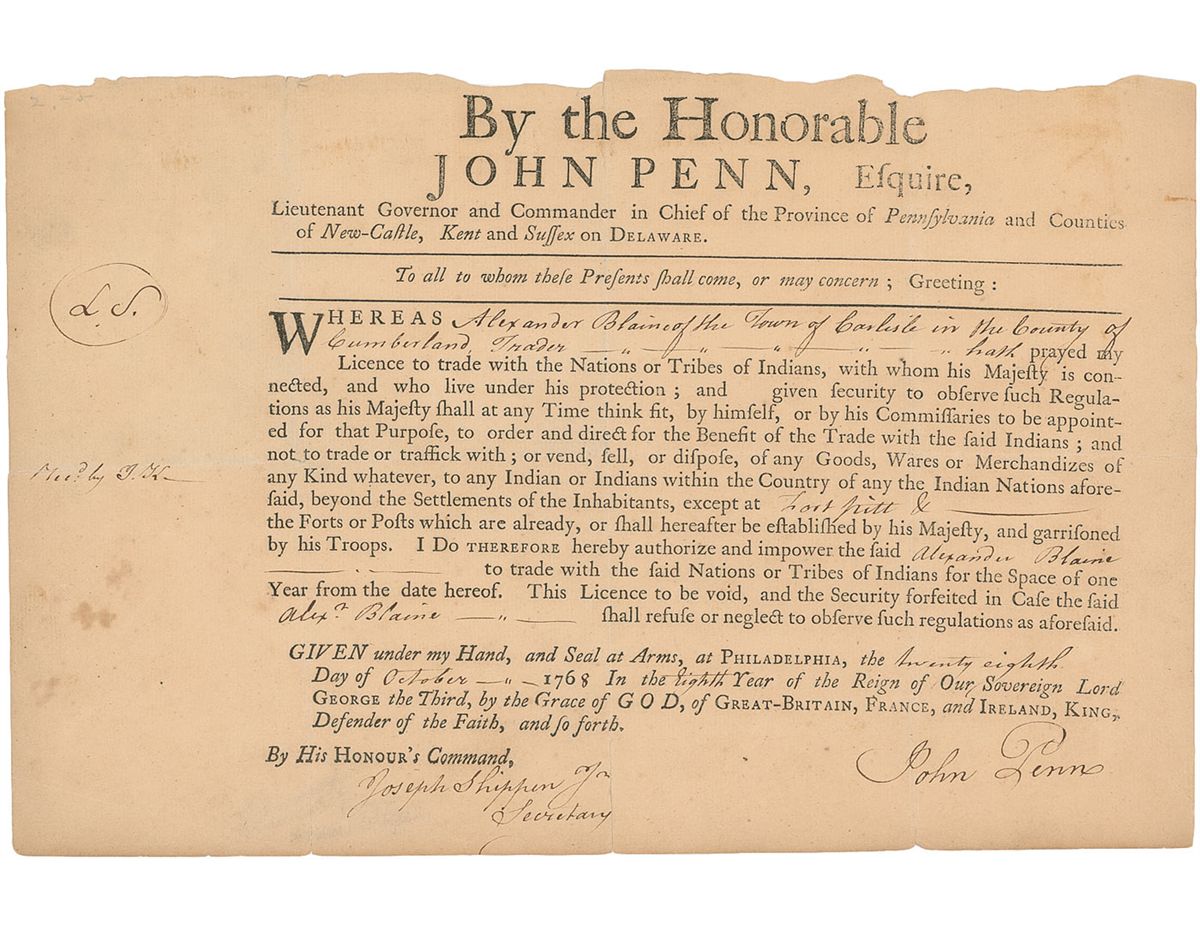 By the Honorable
JOHN PENN, Eſquire,
Lieutenant Governor and Commander in Chief of the Province of Pennſylvania and Counties
of New-Caſtle, Kent and Suſſex on DELAWARE.
To all to whom theſe Preſents ſhall come, or may concern ; Greeting :
L. S.
WHEREAS Alexander Blaine of the Town of Carlisle in the County of
Cumberland, Trader — „ — „ — „ — „ — „ hath prayed my
Licence to trade with the Nations or Tribes of Indians, with whom his Majeſty is con-
nected, and who live under his protection ; and given security to obſerve ſuch Regula-
tions as his Majeſty ſhall at any Time think fit, by himſelf, or by his Commiſſaries to be appoint-
ed for that Purpoſe, to order and direct for the Benefit of the Trade with the ſaid Indians ; and
not to trade or traffick with ; or vend, ſell, or diſpoſe, of any Goods, Wares or Merchandizes of
any Kind whatever, to any Indian or Indians within the Country of any the Indian Nations afore-
ſaid, beyond the Settlements of the Inhabitants, except at Fort pitt & —
the Forts or Poſts which are already, or ſhall hereafter be eſtabliſhed by his Majeſty, and garriſoned
by his Troops. I DO THEREFORE hereby authorize and impower the ſaid Alexander Blaine
— to trade with the ſaid Nations or Tribes of Indians for the Space of one
Year from the date hereof. This Licence to be void, and the Security forfeited in Caſe the ſaid
Alexr. Blaine — „ — ſhall refuſe or neglect to obſerve ſuch regulations as aforeſaid.
GIVEN under my Hand, and Seal at Arms, at PHILADELPHIA, the twenty eighth
Day of October — „ — 1768 In the Eighth Year of the Reign of Our Sovereign Lord
GEORGE the Third, by the Grace of GOD, of GREAT-BRITAIN, FRANCE, and IRELAND, KING,
Defender of the Faith, and ſo forth.
By His HONOUR's Command,
John Penn
Joseph Shippen Jr
Secretary